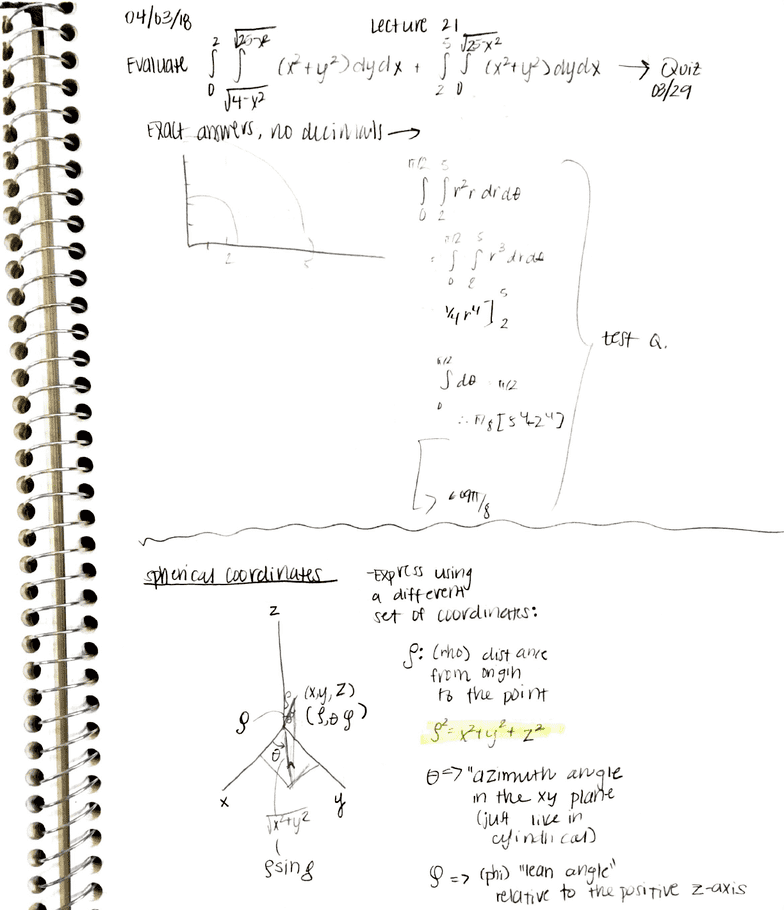 04/03/18
Lecture 21
Evaluate ∫₀² ∫_{√4-x²}^{√25-x²} (x²+y²)dydx + ∫₂⁵ ∫₀^{√25-x²} (x²+y²)dydx → Quiz
03/29
Exact answers, no decimals →
2 5
∫₀^{π/2} ∫₂⁵ r²r drdθ
= ∫₀^{π/2} ∫₂⁵ r³ drdθ
1/4 r⁴]₂⁵
test Q.
∫₀^{π/2} dθ = π/2
∴ π/8 [5⁴-2⁴]
609π/8
spherical coordinates
-Express using
a different
set of coordinates:
z
ρ: (rho) distance
from origin
to the point
ρ
(x,y,z)
(ρ,θ φ)
ρ
ρ²=x²+y²+z²
θ
x
y
θ=> "azimuth angle
in the xy plane
(just like in
cylindrical)
√x²+y²
ρsinφ
φ => (phi) "lean angle"
relative to the positive z-axis